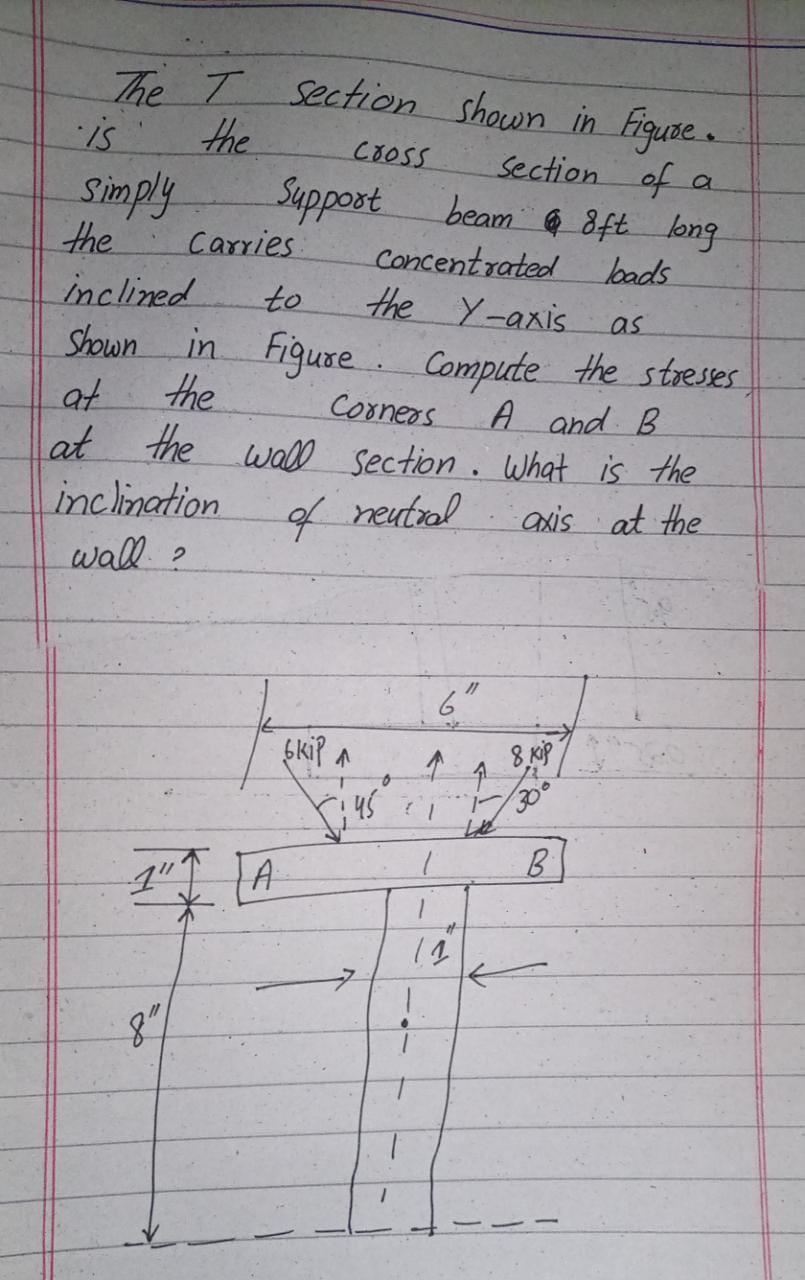 The T section shown in Figure.
is the cross section of a
simply Support beam 8ft long
the Carries concentrated loads
inclined to the Y-axis as
Shown in Figure. Compute the stresses
at the Corners A and B
at the wall section. What is the
inclination of neutral axis at the
wall ?
6"
6 KIP 8 KIP
45° 30°
1" A B
1"
8"